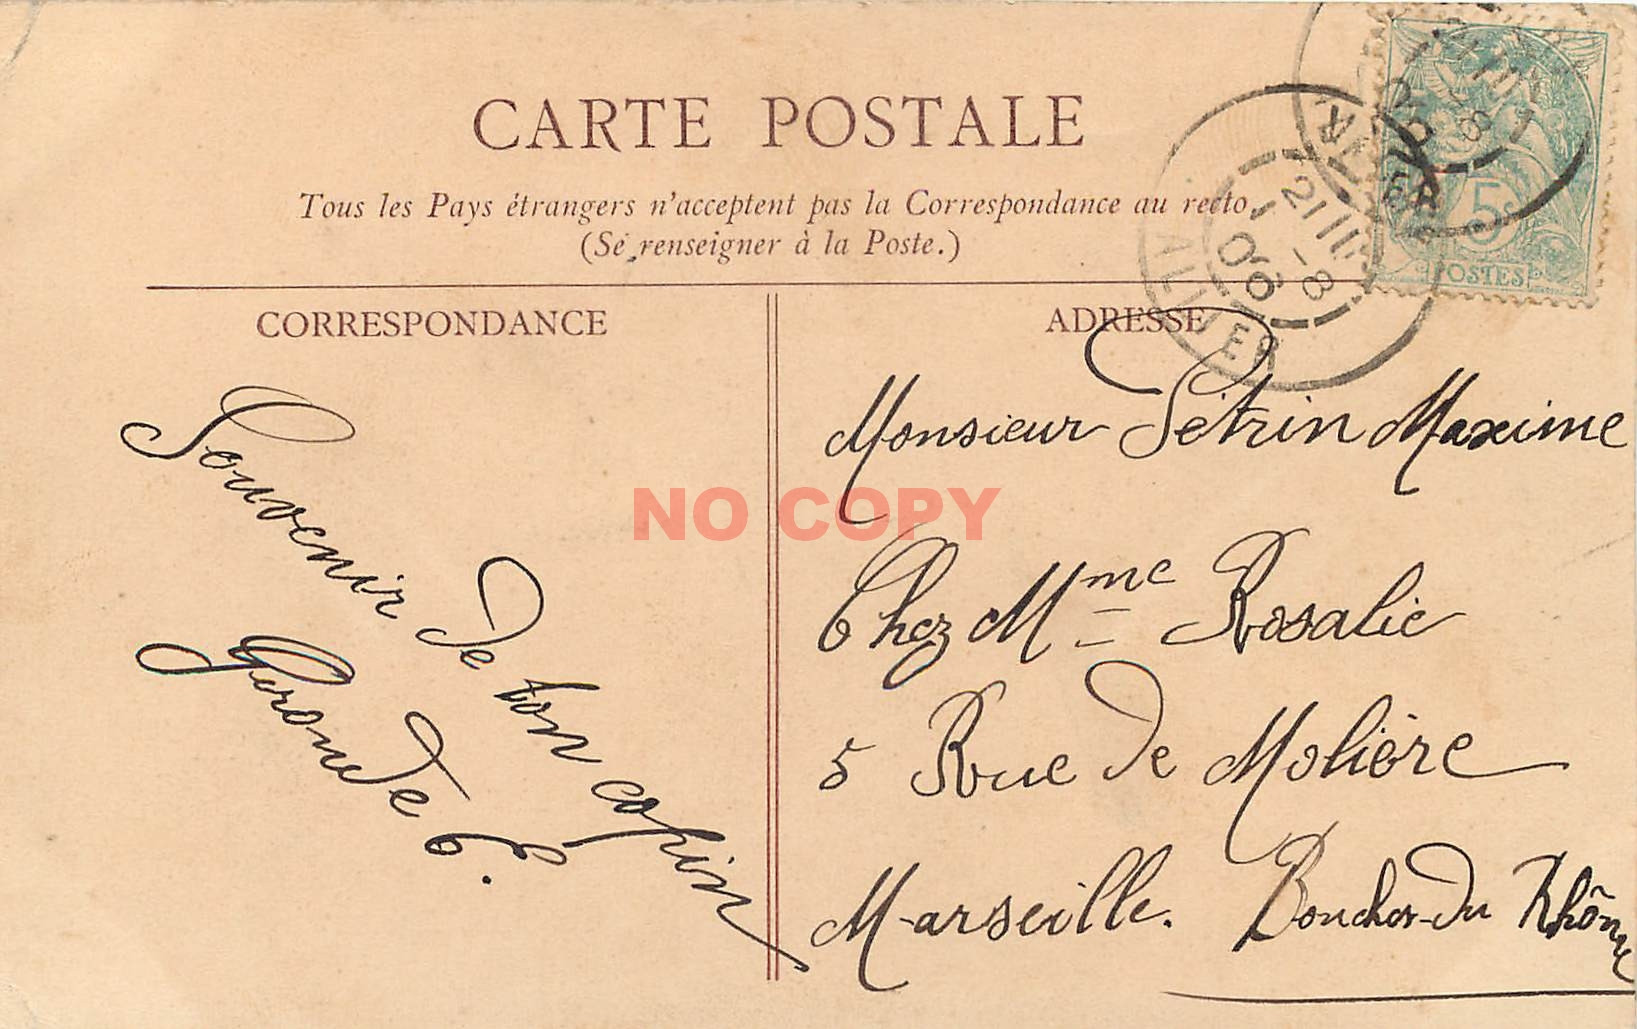 CARTE POSTALE
Tous les Pays étrangers n'acceptent pas la Correspondance au recto.
(Se renseigner à la Poste.)
CORRESPONDANCE
Souvenir de ton copin
Geronde E.
ADRESSE
Monsieur Sétrin Maxime
Chez Mme Rosalie
5 Rue de Molière
Marseille. Bouches-du Rhône
NO COPY
5c
POSTES
ALLIER
21 - 8
06